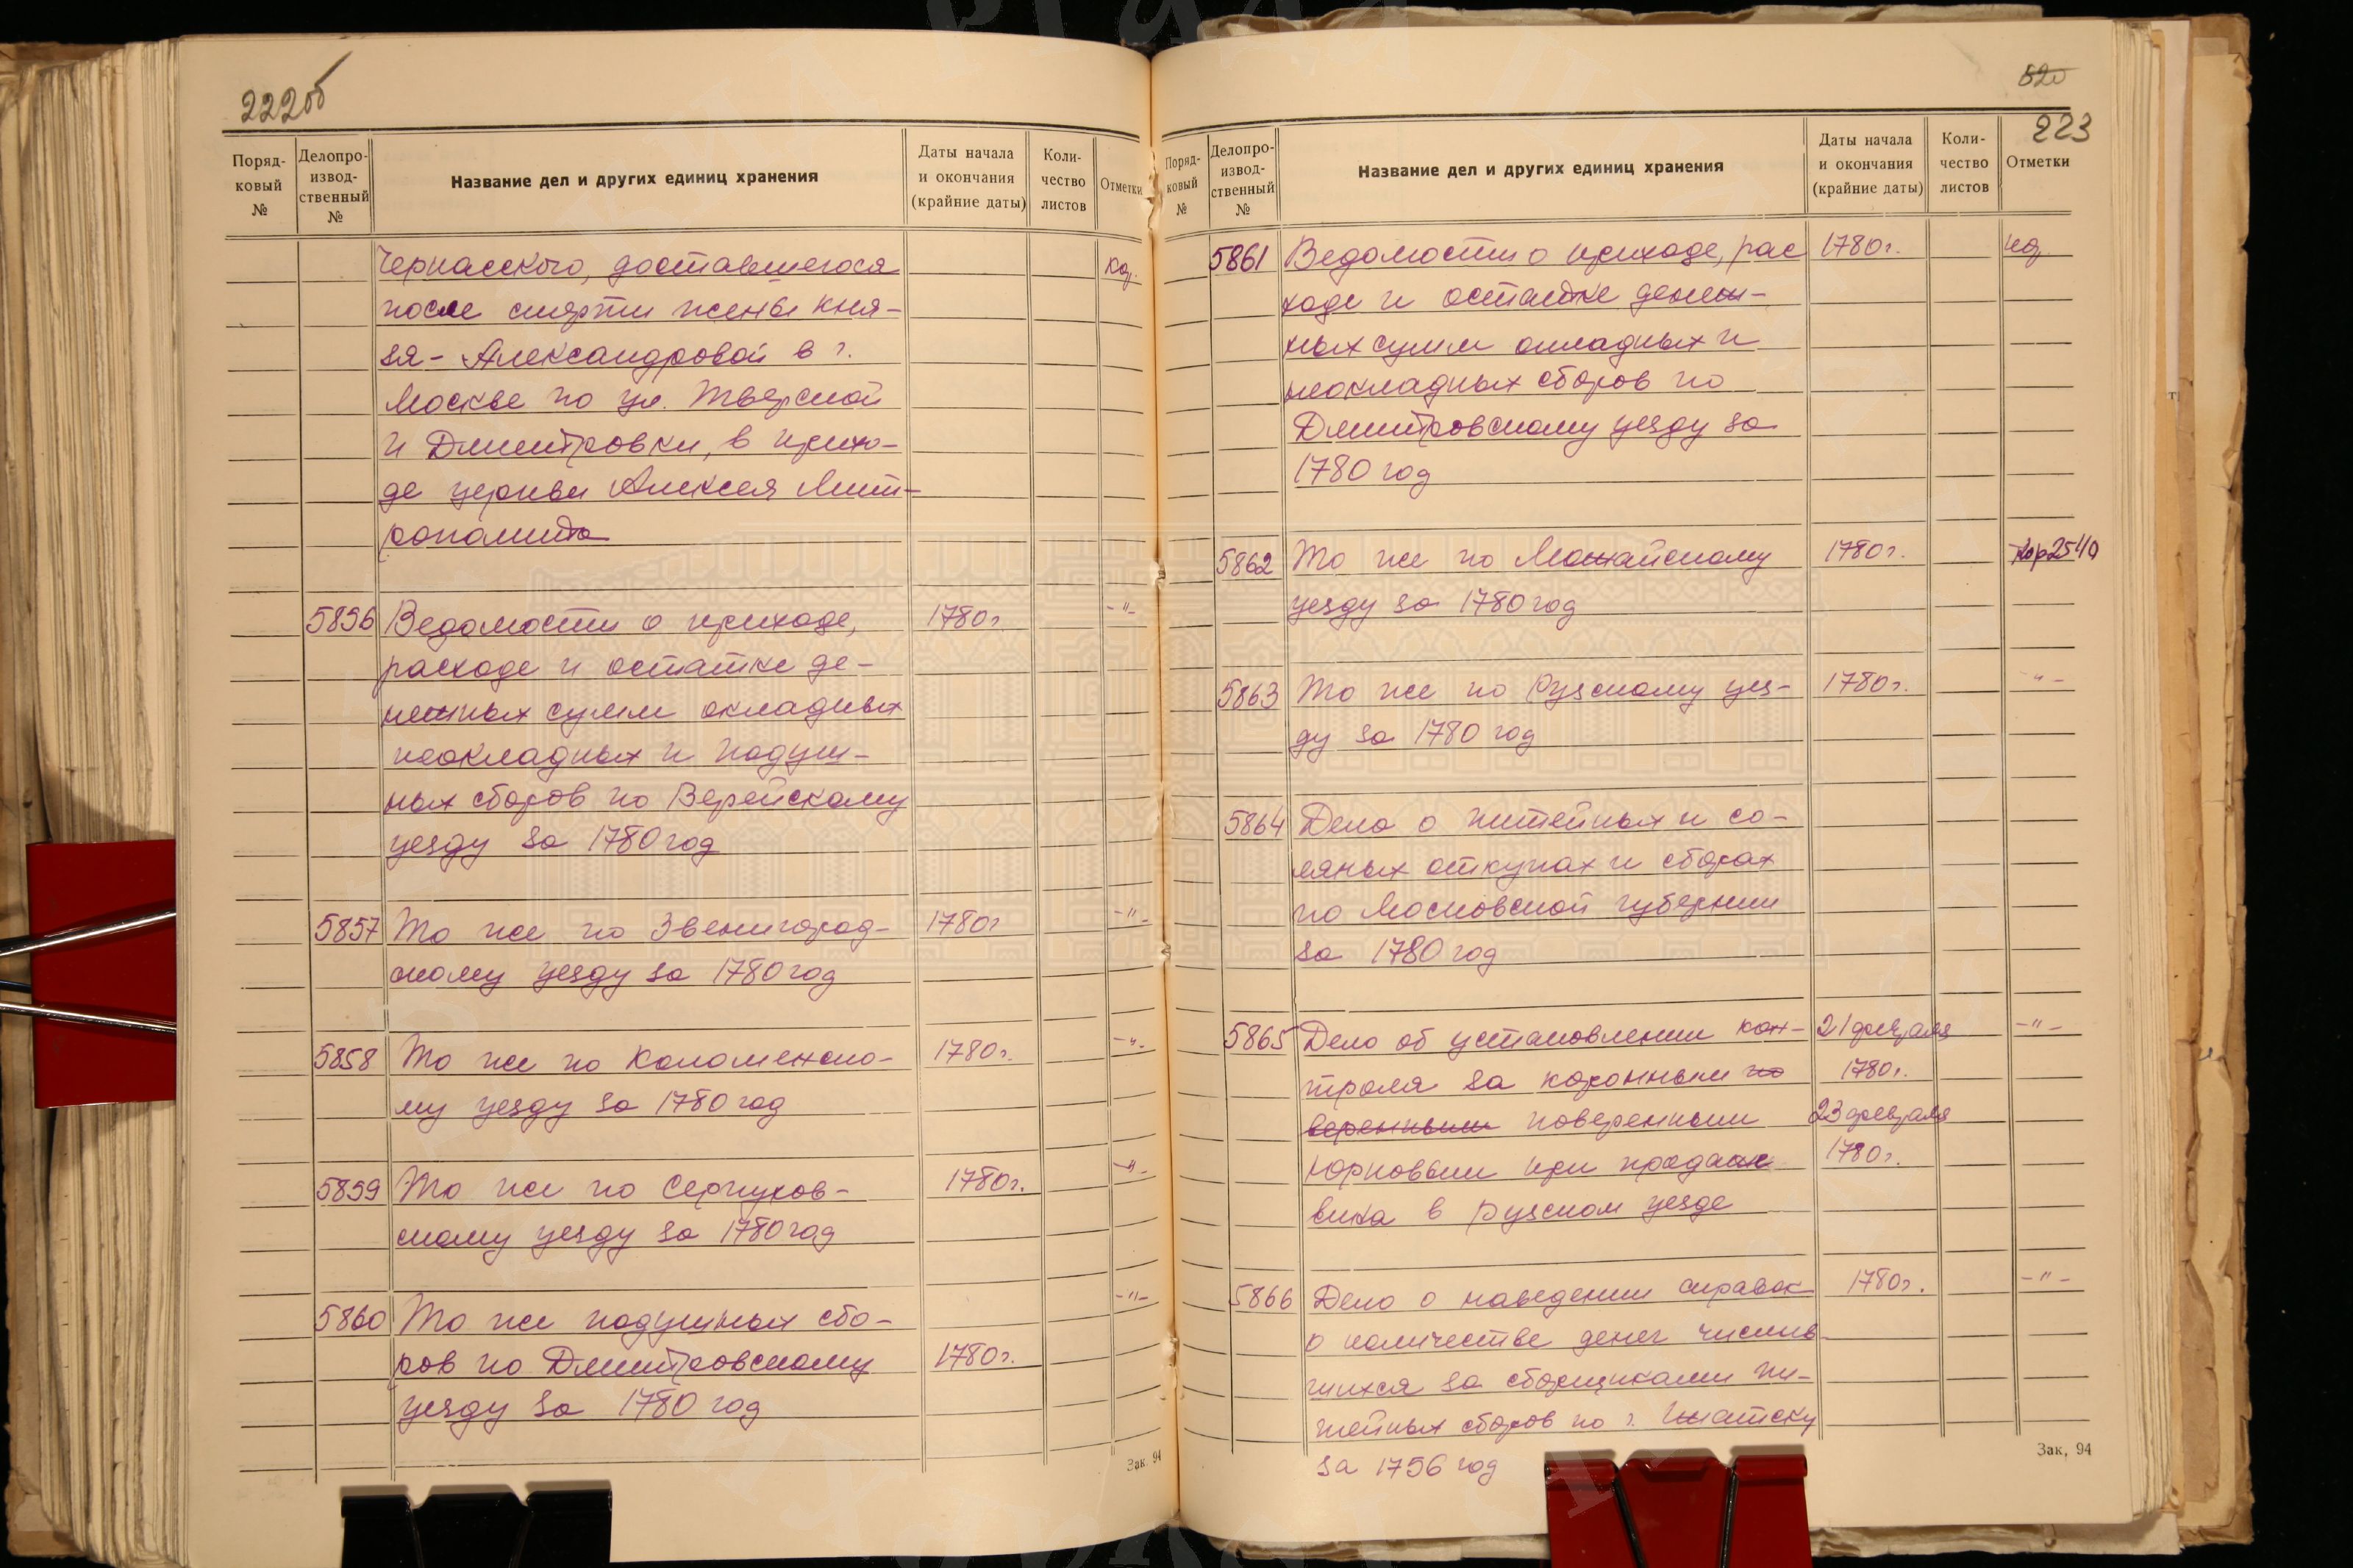 222об
Поряд-
ковый
№
Делопро-
извод-
ственный
№
Название дел и других единиц хранения
Даты начала
и окончания
(крайние даты)
Коли-
чество
листов
Отметки
Черкасского, доставшегося
после смерти жены кня-
зя - Александровой в г.
Москве по ул. Тверской
и Дмитровки, в прихо-
де церкви Алексея Мит-
рополита
5856 Ведомости о приходе, 1780г. -"-
расходе и остатке де-
нежных сумм окладных
неокладных и подуш-
ных сборов по Верейскому
уезду за 1780 год
5857 То же по Звенигород- 1780г -"-
скому уезду за 1780 год
5858 То же по Коломенско- 1780г. -"-
му уезду за 1780 год
5859 То же по Серпухов- 1780г. -"-
скому уезду за 1780 год
5860 То же подушных сбо- -"-
ров по Дмитровскому 1780г.
уезду за 1780 год
Зак. 94
520
223
Поряд-
ковый
№
Делопро-
извод-
ственный
№
Название дел и других единиц хранения
Даты начала
и окончания
(крайние даты)
Коли-
чество
листов
Отметки
5861 Ведомости о приходе, рас 1780г.
ходе и остатке денеж-
ных сумм окладных и
неокладных сборов по
Дмитровскому уезду за
1780 год
5862 То же по Можайскому 1780г.
уезду за 1780 год
5863 То же по Рузскому уез- 1780г. -"-
ду за 1780 год
5864 Дело о питейных и со-
ляных откупах и сборах
по Московской губернии
за 1780 год
5865 Дело об установлении кон- 21 февраля -"-
троля за коронным по 1780г.
веренным поверенным 23 февраля
Юрковым при продаже 1780г.
вина в Рузском уезде
5866 Дело о наведении справок 1780г. -"-
о количестве денег числив
шихся за сборщиками пи-
тейных сборов по г. Гжатску
за 1756 год
Зак. 94